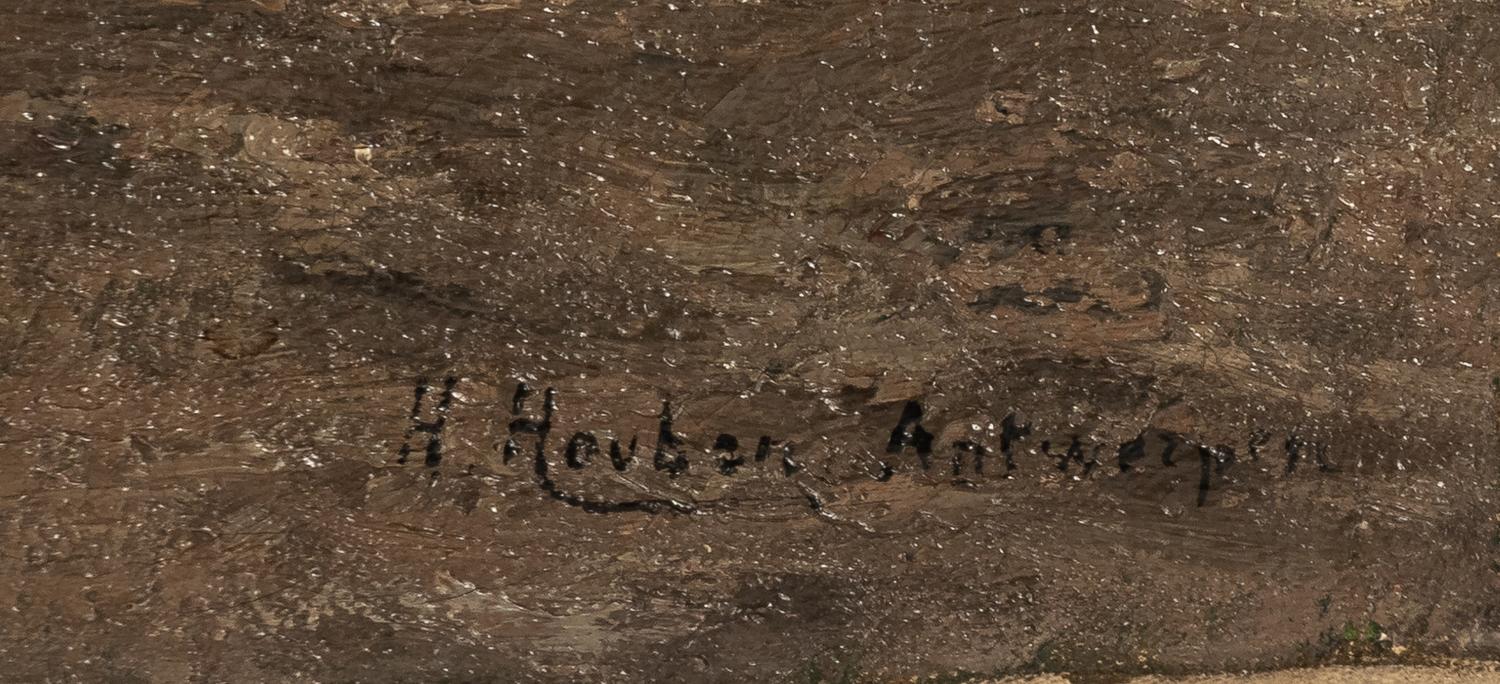 H. Houben Antwerpen